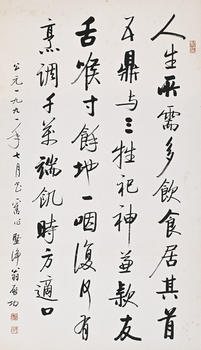 人生所需多飲食居其首
五鼎与三牲祀神兼款友
舌喉寸餘地一咽復何有
烹調千萬端飢時方適口
公元一九九一年七月書舊作 堅淨翁啟功